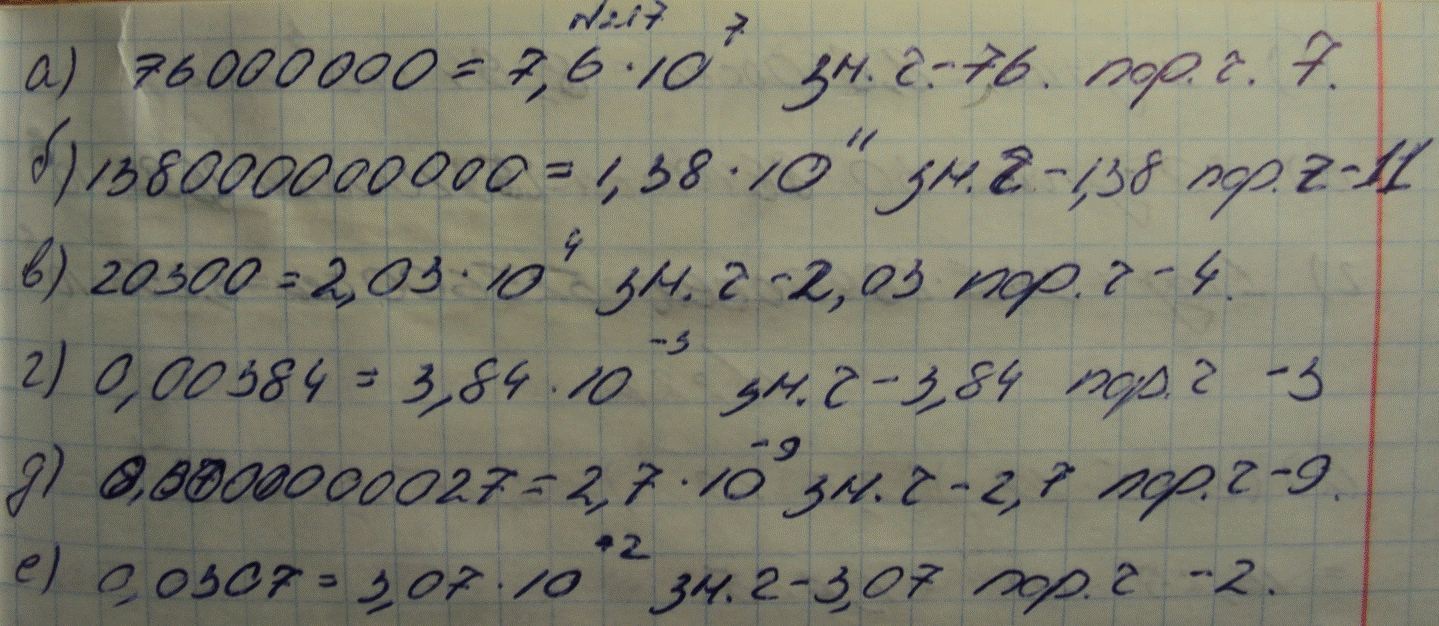 №217
а) 76000000 = 7,6 · 10⁷ зн. ч. - 7,6. пор. ч. 7.
б) 138000000000 = 1,38 · 10¹¹ зн. ч - 1,38 пор. ч - 11
в) 20300 = 2,03 · 10⁴ зн. ч - 2,03 пор. ч - 4.
г) 0,00384 = 3,84 · 10⁻³ зн. ч - 3,84 пор. ч -3
д) 0,0000000027 = 2,7 · 10⁻⁹ зн. ч - 2,7 пор. ч - 9.
е) 0,0307 = 3,07 · 10⁻² зн. ч - 3,07 пор. ч -2.